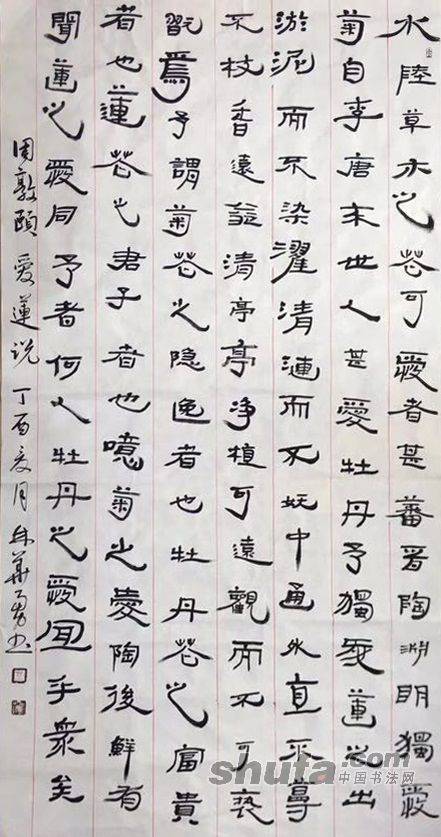 水陸草木之花可愛者甚蕃晉陶淵明獨愛
菊自李唐末世人甚愛牡丹予獨愛蓮之出
淤泥而不染濯清漣而不妖中通外直不蔓
不枝香遠益清亭亭净植可遠觀而不可褻
翫焉予謂菊花之隐逸者也牡丹花之富貴
者也蓮花之君子者也噫菊之愛陶後鮮有
聞蓮之愛同予者何人牡丹之愛宜乎衆矣
周敦頤愛蓮说丁酉夏月
shufa.com
中国书法网